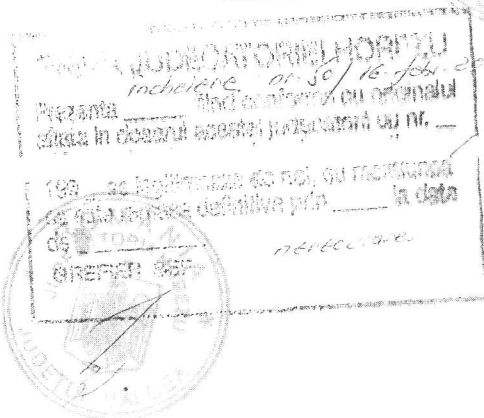 JUDECATORIEI HOREZU
incheiere nr. 50/16 febr. 20
Prezenta fiind conforma cu originalul
aflata in dosarul acestei judecatorii cu nr.
199 se legitimeaza de noi, cu mentiunea
ca este ramasa definitiva prin la data
de
nerecurare
GREFIER SEF
JUDETUL VALCEA